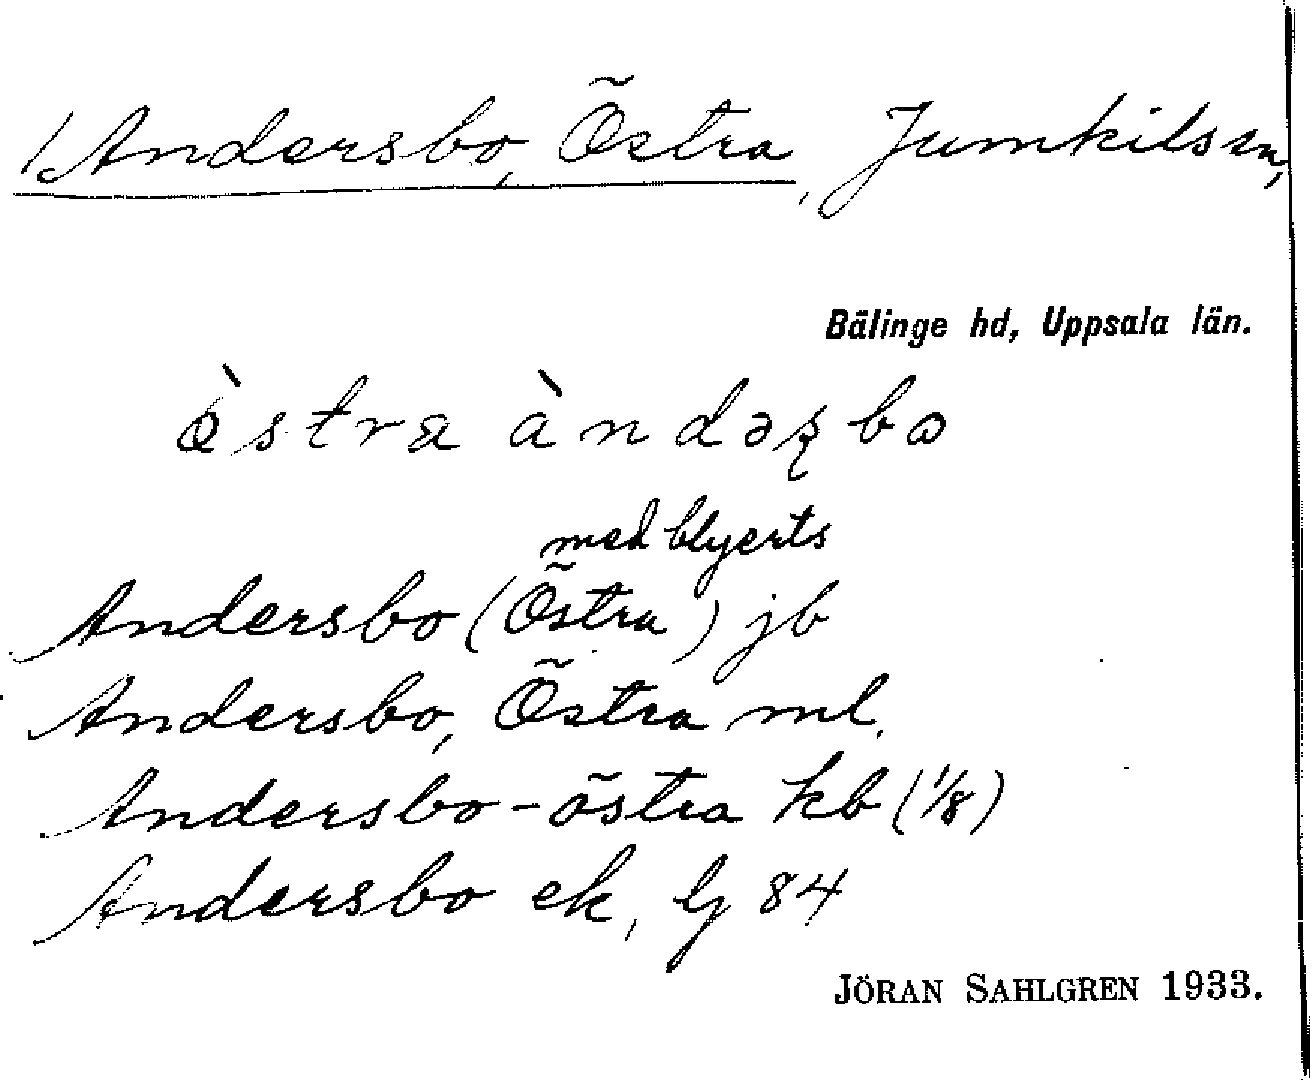 1) Andersbo, Östra, Jumkils sn,
Bälinge hd, Uppsala län.
ö̀stra àndəʂbo
med blyerts
Andersbo (Östra) jb
Andersbo, Östra ml.
Andersbo-östra kb (1/8)
Andersbo ek, lj 84
JÖRAN SAHLGREN 1933.